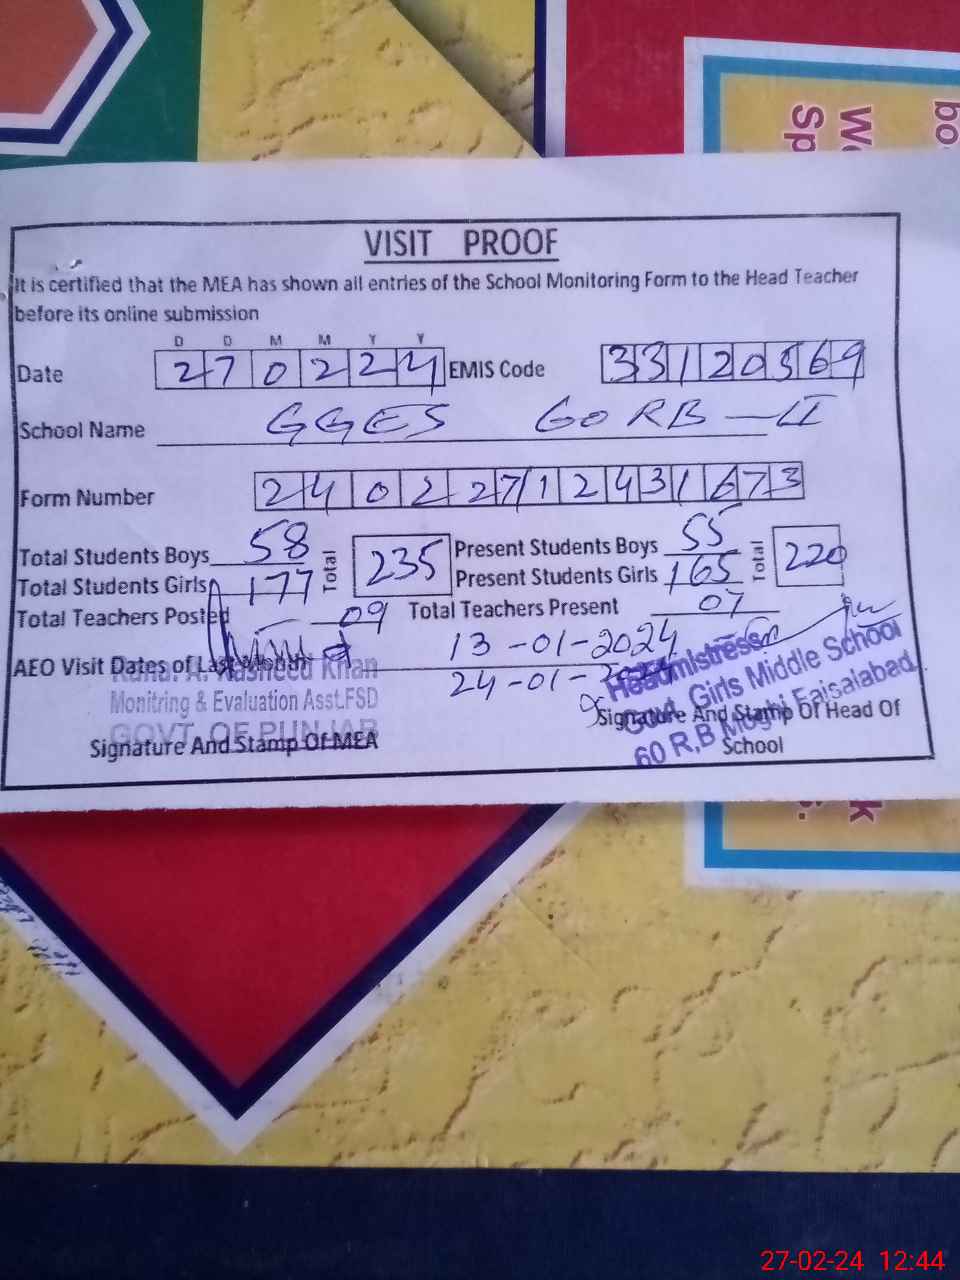 bo
We
Sp
VISIT PROOF
It is certified that the MEA has shown all entries of the School Monitoring Form to the Head Teacher
before its online submission
D D M M Y Y
Date 270224 EMIS Code 33120569
School Name GGES 60 RB - II
Form Number 24022712431673
Total Students Boys 58 Total 235 Present Students Boys 55 Total 220
Total Students Girls 177 Present Students Girls 165
Total Teachers Posted 09 Total Teachers Present 07
AEO Visit Dates of Last Month 13-01-2024
24-01-2024
Rana. A. Rasheed Khan
Monitring & Evaluation Asst.FSD
GOVT. OF PUNJAB
Signature And Stamp Of MEA
Headmistress
Govt. Girls Middle School
60 R,B Faisalabad
Signature And Stamp Of Head Of
School
k
s.
27-02-24 12:44